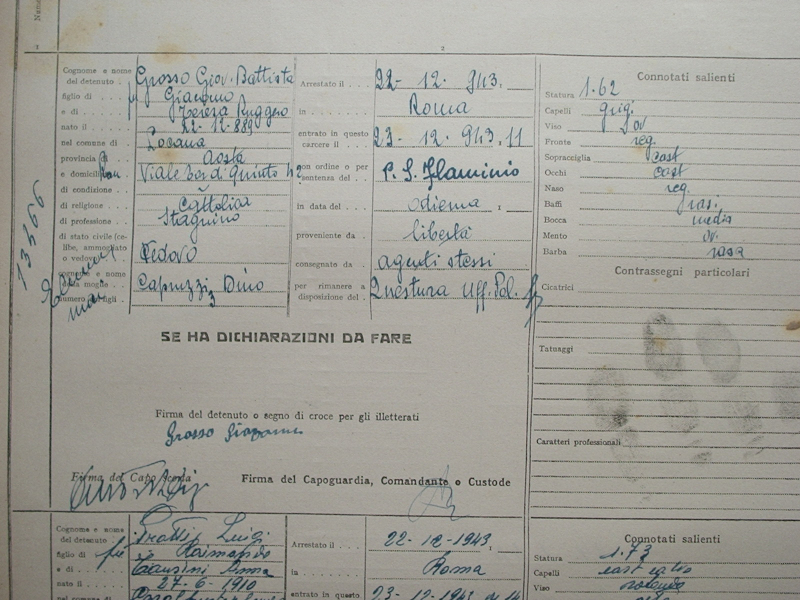 1
2
Cognome e nome del detenuto Grosso Giov. Battista
figlio di fu Giacomo
e di Teresa Ruggero
nato il 22-12-889
nel comune di Locana
provincia di Aosta
e domicil. Viale Bor. di Quinto 42
di condizione
di religione Cattolica
di professione Stagnino
di stato civile (celibe, ammogliato o vedovo) Vedovo
cognome e nome della moglie Capuzzi Dino
numero figli 3
13466
Arrestato il 22-12.943.
in Roma
entrato in questo carcere il 23.12.943.11
con ordine o per sentenza del P. S. Flaminio
in data del odierna
proveniente da libertà
consegnato da agenti stessi
per rimanere a disposizione del Questura Uff. Pol.
Connotati salienti
Statura 1.62
Capelli grigi
Viso ov
Fronte reg.
Sopracciglia cast
Occhi cast
Naso reg.
Baffi grigi
Bocca media
Mento ov.
Barba rasa
Contrassegni particolari
Cicatrici
Tatuaggi
Caratteri professionali
SE HA DICHIARAZIONI DA FARE
Firma del detenuto o segno di croce per gli illetterati
Grosso Giovanni
Firma del Capo Scorta
Firma del Capoguardia, Comandante o Custode
Cognome e nome del detenuto Pratti Luigi
figlio di fu Raimondo
e di Anna
nato il 27-6-1910
nel comune
Arrestato il 22-12-1943.
in Roma
entrato in questo 23-12-1943 14
Connotati salienti
Statura 1.73
Capelli
Viso